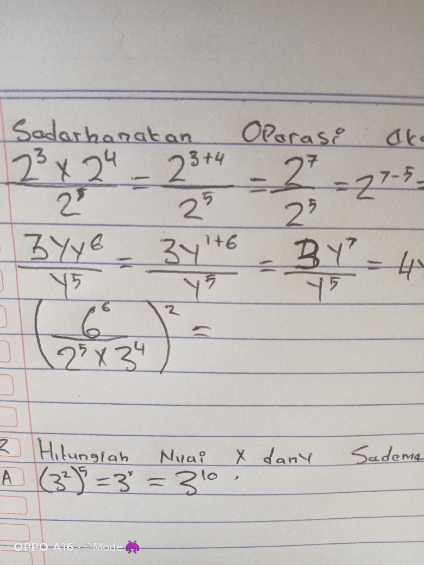 Sadarhanakan Oparasi
2³ x 2⁴ / 2⁵ = 2³⁺⁴ / 2⁵ = 2⁷ / 2⁵ = 2⁷⁻⁵ =
3yy⁶ / y⁵ = 3y¹⁺⁶ / y⁵ = 3y⁷ / y⁵ = 4y
(6⁶ / 2⁵ x 3⁴)² =
2 Hitunglah Nilai x dany Sadema
A (3²)⁵ = 3ˣ = 3¹⁰ .
OPPO A16 Mode